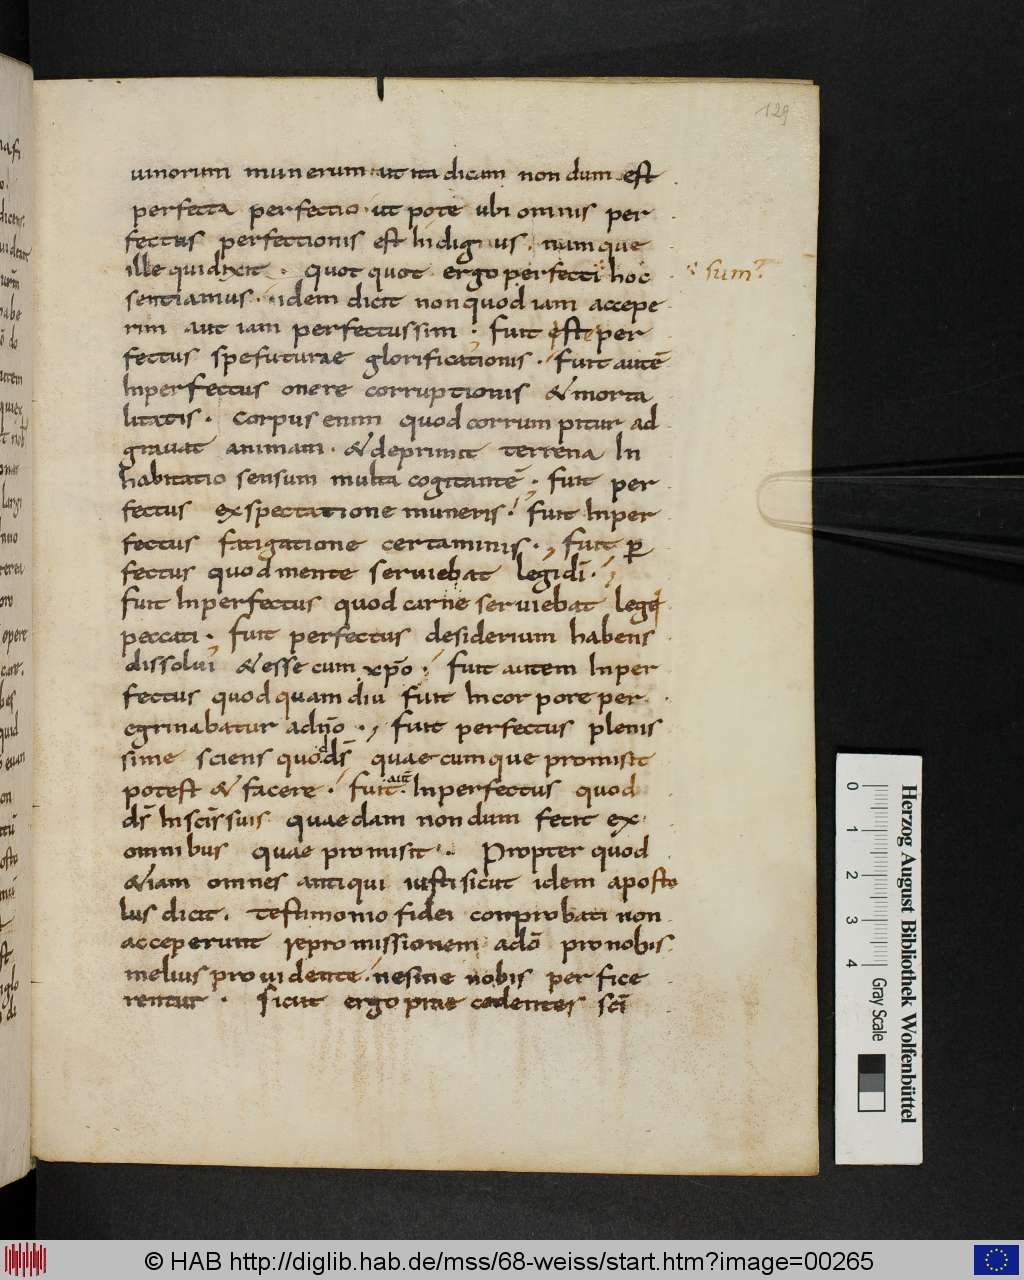 129
uinorum munerum · ut ita dicam non dum est
perfecta perfectio · ut pote ubi omnis per
fectus perfectionis est Indignus · namque
ille qui dixit · quot quot ergo perfecti hoc
sum?
sentiamus · idem dicit non quod iam accepe
rim aut iam perfectus sim · fuit est per
fectus spe futurae glorificationis · fuit autē
Inperfectus onere corruptionis & morta
litatis · corpus enim quod corrumpitur ad
gravat animam · & deprimit terrena In
habitatio sensum multa cogitantē · fuit per
fectus exspectatione muneris · fuit Inper
fectus fatigatione certaminis · fuit ꝑ
fectus quod mente serviebat legi dī ·
fuit Inperfectus quod carne serviebat lege
peccati · fuit perfectus desiderium habens
dissolui & esse cum xp̄o · fuit autem Inper
fectus quod quam diu fuit In corpore per
egrinabatur a dn̄o · fuit perfectus plenis
sime sciens quod ds̄ quaecumque promisit
potest & facere · fuit autē Inperfectus quod
ds̄ In sc̄is suis quaedam non dum fecit ex
omnibus quae promisit · Propter quod
& iam omnes antiqui iusti sicut idem aposto
lus dicit · testimonio fidei conprobati non
acceperunt repromissionem a dō pro nobis
melius providente · ne sine nobis perfice
rentur · Sicut ergo praecedentes sc̄i
0 1 2 3 4
Gray Scale
Herzog August Bibliothek Wolfenbüttel
© HAB http://diglib.hab.de/mss/68-weiss/start.htm?image=00265